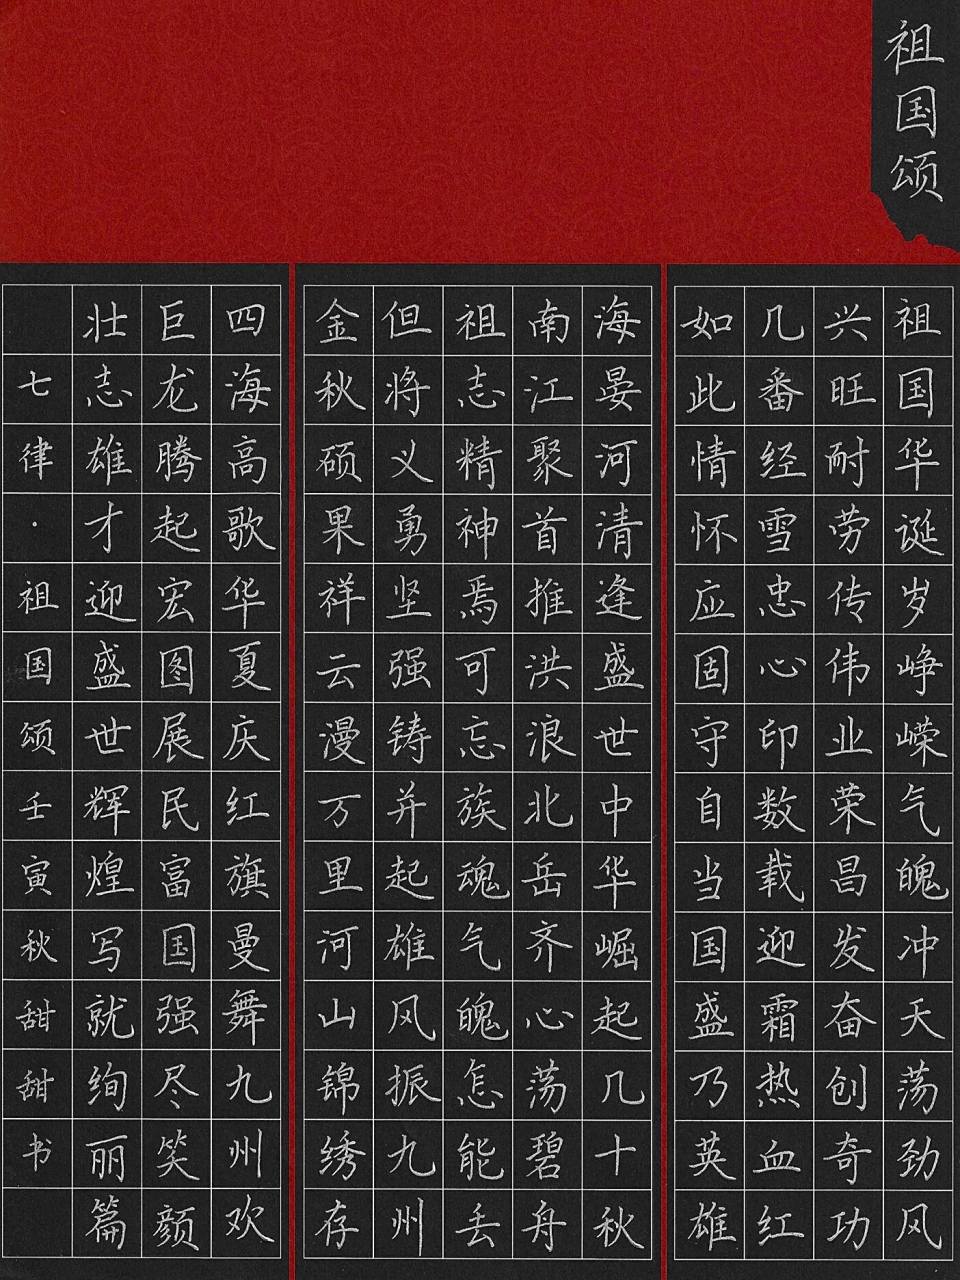 祖国颂
祖国华诞岁峥嵘气魄冲天荡劲风
兴旺耐劳传伟业荣昌发奋创奇功
几番经雪忠心印数载迎霜热血红
如此情怀应固守自当国盛乃英雄
海晏河清逢盛世中华崛起几十秋
南江聚首推洪浪北岳齐心荡碧舟
祖志精神焉可忘族魂气魄怎能丢
但将义勇坚强铸并起雄风振九州
金秋硕果祥云漫万里河山锦绣存
四海高歌华夏庆红旗曼舞九州欢
巨龙腾起宏图展民富国强尽笑颜
壮志雄才迎盛世辉煌写就绚丽篇
七律·祖国颂壬寅秋甜甜书